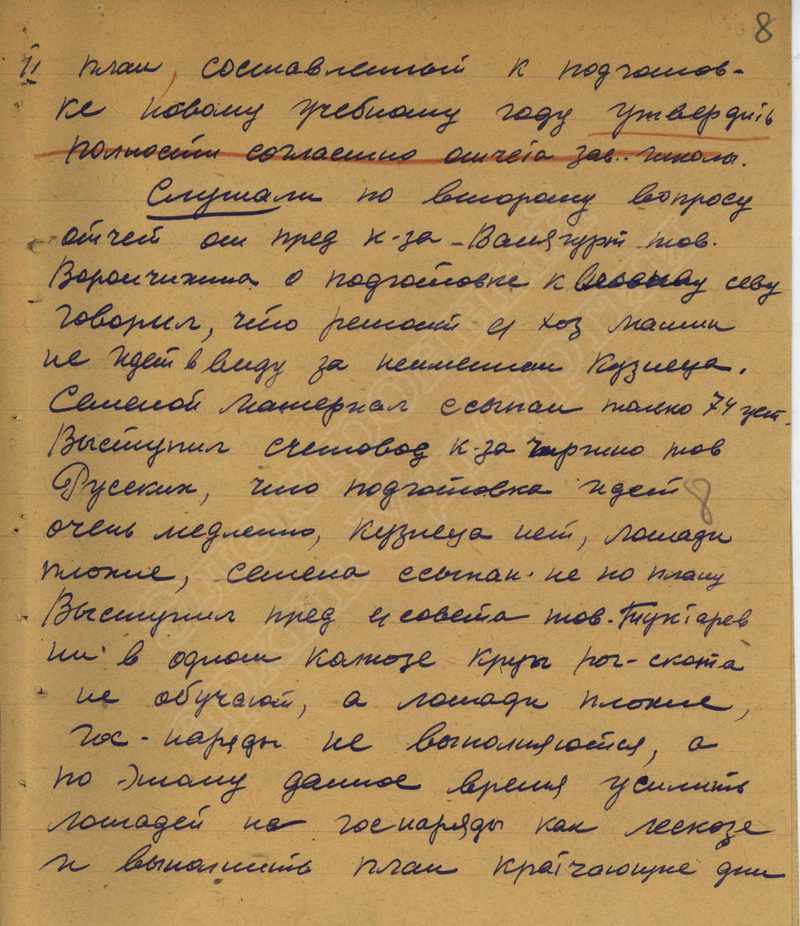 8
II план, составленный к подготов-
ке новому учебному году утвердить
полностти согласно отчета зав. школы.
Слушали по второму вопросу
отчет от пред к-за - Валягурт тов.
Ворончихина о подготовке к севу
говорил, что ремонт с/хоз машин
не идет в виду за неимением кузнеца.
Семеной материал ссыпан толко 74 уст.
Выступил счетовод к-за тов
Русских, что подготовка идет
очень медленно, кузнеца нет, лошади
плохие, семена ссыпан не по плану
Выступил пред с/совета тов. Туктарев
ни в одном колхозе круп рог-скота
не обучают, а лошади плохие,
гос-наряды не выполняются, а
по этому данное время усилить
лошадей на госнаряды как лесхозе
и выполнить план кратчающие дни
8